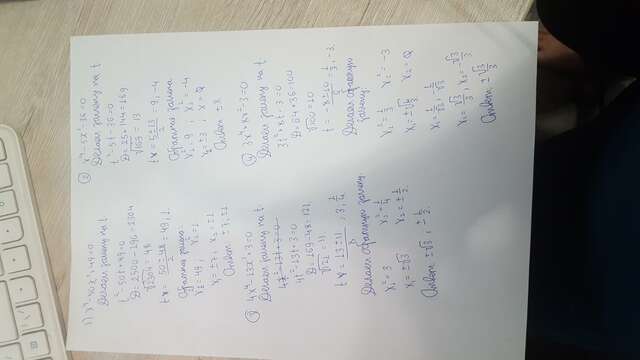 1) x⁴-50x²+49=0
Делаем замену на t
t²-50t+49=0
D=2500-196=2304
√2304=48
t = (50±48)/2 = 49, 1.
Обратная замена
x₁²=49, x₂²=1
x₁=±7, x₂=±1
Ответ ±7, ±1
② x⁴-5x²-36=0
Делаем замену на t
t²-5t-36=0
D=25+144=169
√169=13
t = (5±13)/2 = 9, -4
Обратная замена
x₁²=9, x₂²=-4
x₁=±3, x=Ø
Ответ ±3
③ 4x⁴-13x²+3=0
Делаем замену на t
4t²-13t+3=0
D=169-48=121
√121=11
Делаем обратную замену
x₁²=3 x₂²=1/4
x₁=±√3 x₂=±1/2
Ответ ±√3, ±1/2.
④ 3x⁴+8x²-3=0
Делаем замену на t
3t²+8t-3=0
D=64+36=100
√100=10
Делаем обратную
замену
x₁²=1/3 x₂²=-3
x₂=Ø
Ответ ±√3/3